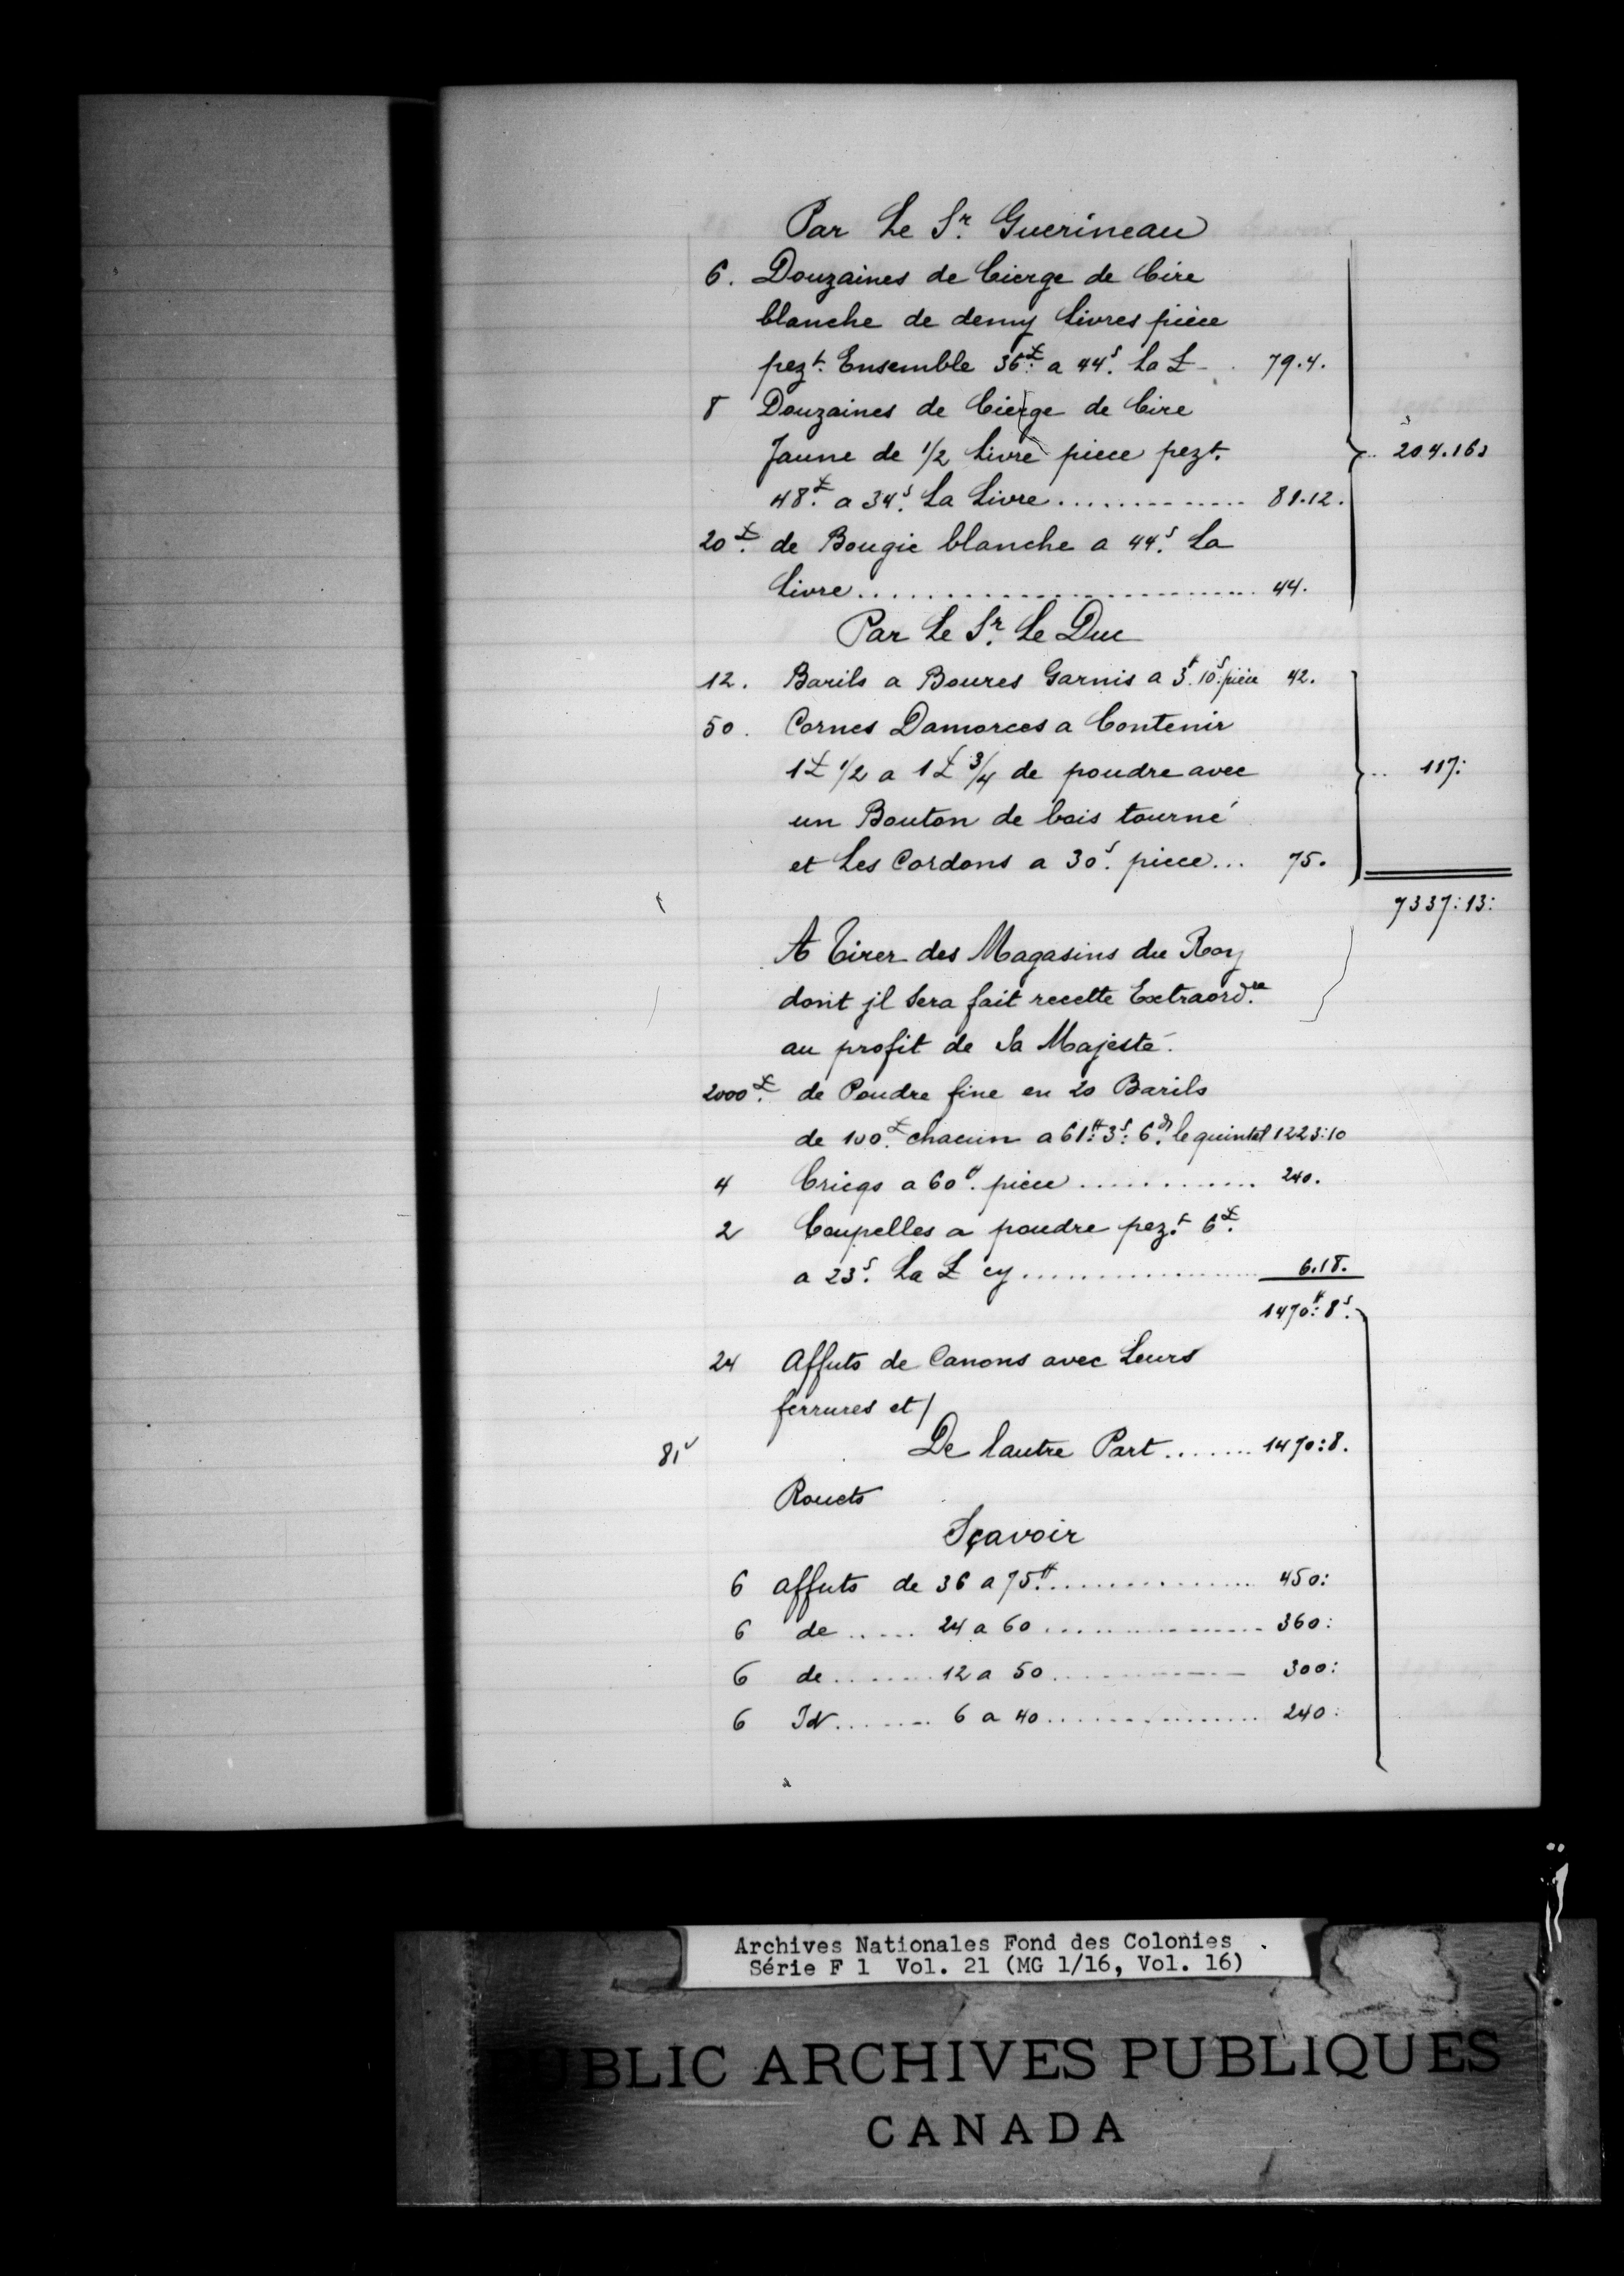 Par Le Sr. Guerineau
6. Douzaines de Cierge de Cire
blanche de demy Livres pièce
pezt. Ensemble 36£. a 44s. La £ - . 79.4.
8 Douzaines de Cierge de Cire
Jaune de 1/2 Livre piece pezt.
.. 204.16s
48£. a 34s. La Livre ............. 81.12.
20£. de Bougie blanche a 44s. La
Livre ............................ 44.
Par Le Sr. Le Duc
12. Barils a Boures Garnis a 3#. 10s. pièce 42.
50. Cornes Damorces a Contenir
1£ 1/2 a 1£ 3/4 de poudre avec
.. 117:
un Bouton de bois tourné
et Les Cordons a 30s. piece... 75.
7337:13:
A Tirer des Magasins du Roy
dont jl Sera fait recette Extraordre.
au profit de Sa Majesté.
2000£. de Poudre fine en 20 Barils
de 100£. chacun a 61#: 3s: 6d. le quintal 1223:10
4 Cricqs a 60#. pièce ............ 240.
2 Coupelles a poudre pezt. 6£.
a 23s. La £ cy .................. 6.18.
1470#: 8s.
24 Affuts de Canons avec Leurs
ferrures et /
81v De lautre Part ....... 1470:8.
Rouets
Sçavoir
6 affuts de 36 a 75# ............... 450:
6 de ...... 24 a 60 ................ 360:
6 de ........ 12 a 50 .............. 300:
6 Id ........ 6 a 40 ................ 240:
Archives Nationales Fond des Colonies
Série F 1 Vol. 21 (MG 1/16, Vol. 16)
PUBLIC ARCHIVES PUBLIQUES
CANADA